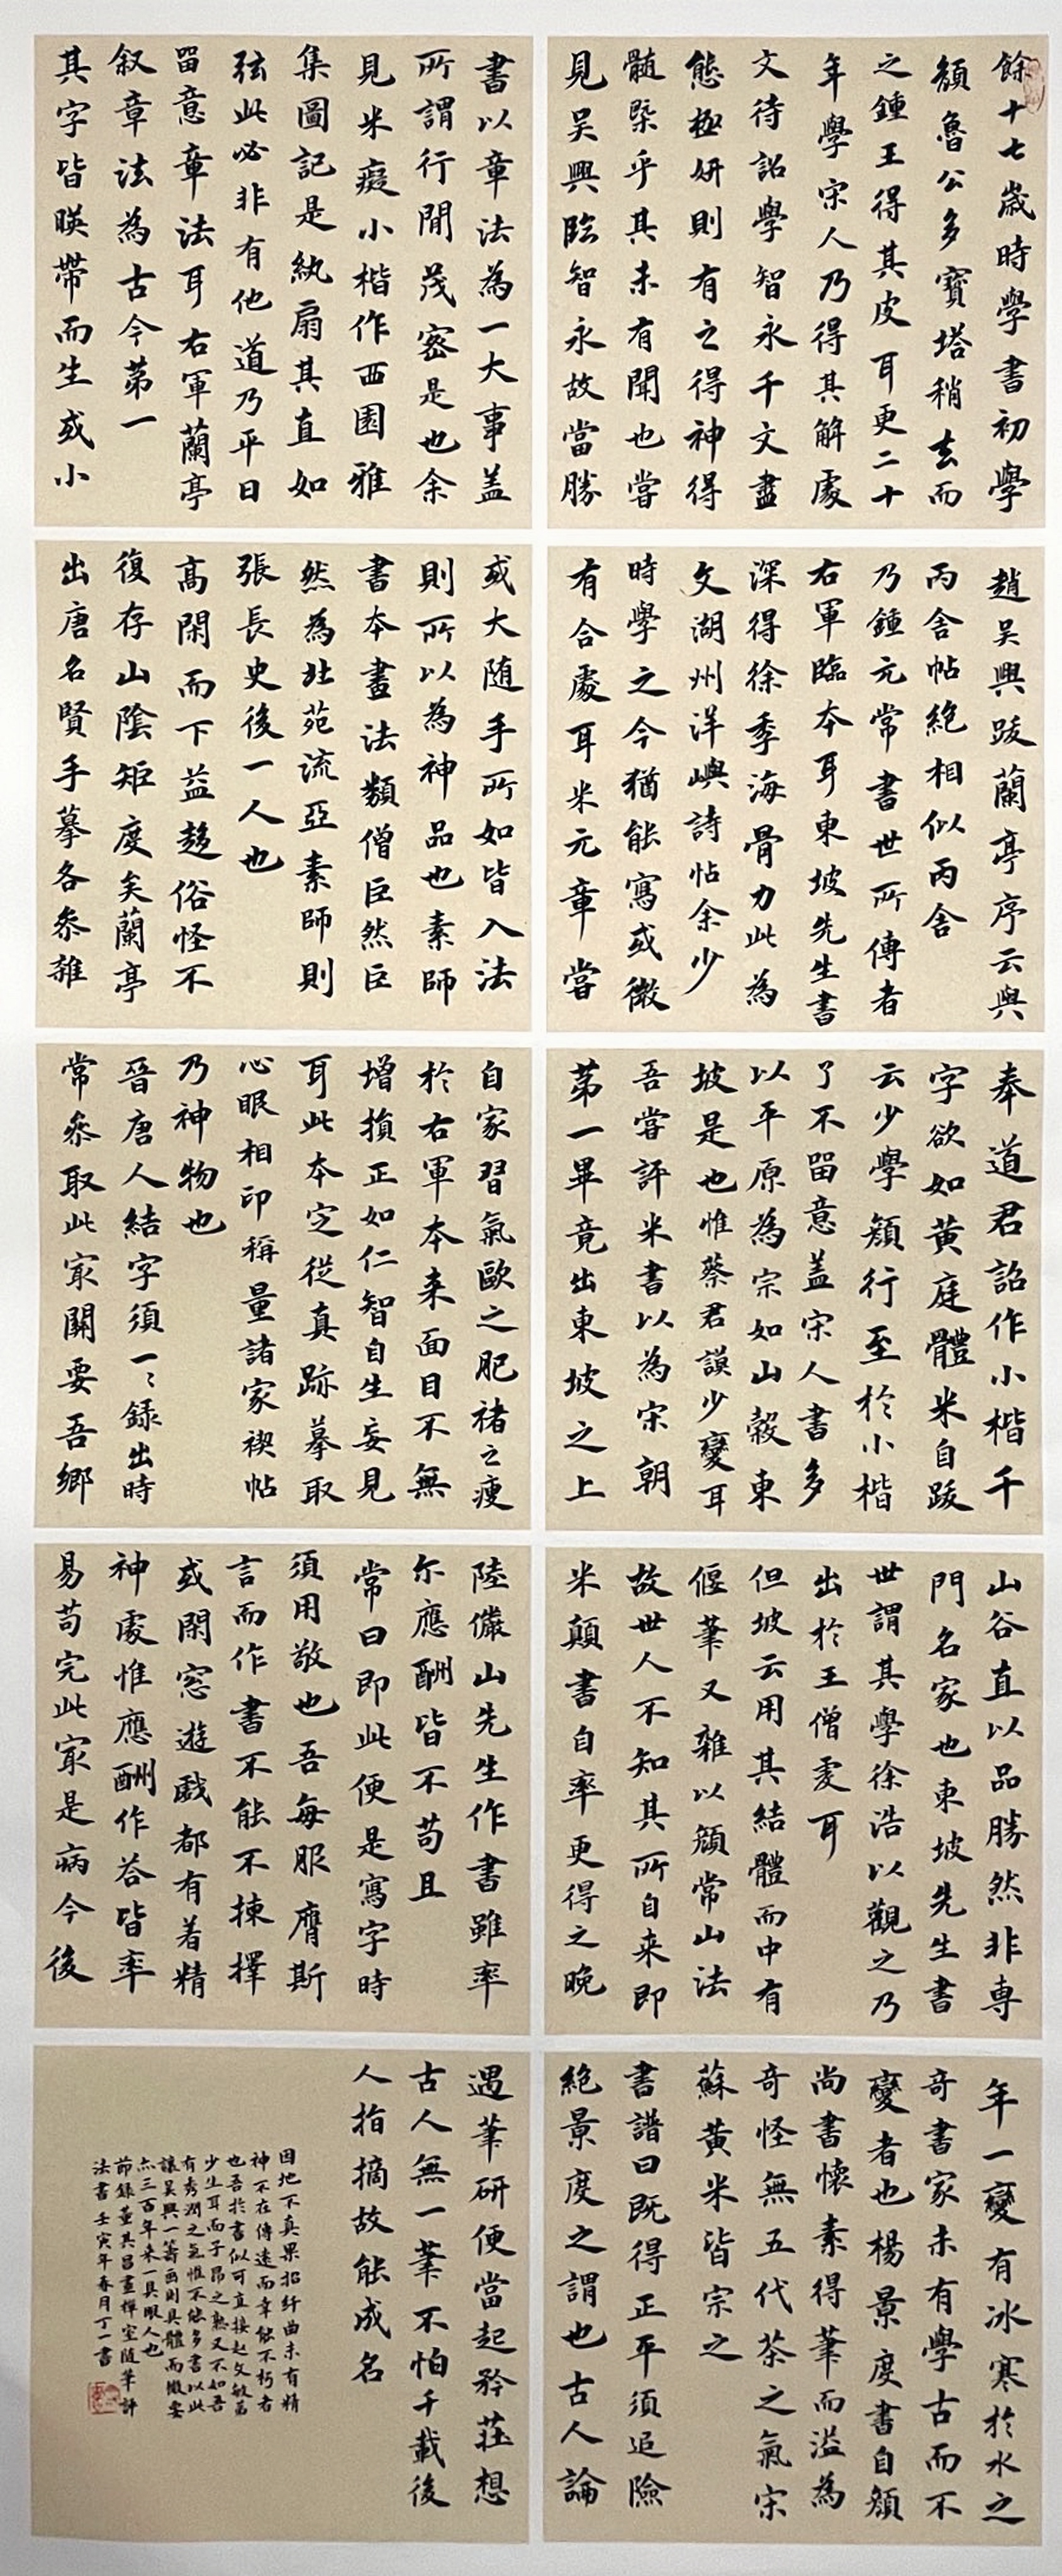 餘十七歲時學書初學
顏魯公多寶塔稍去而
之鍾王得其皮耳更二十
年學宋人乃得其解處
文待詔學智永千文盡
態極妍則有之得神得
髓槩乎其未有聞也嘗
見吳興臨智永故當勝
趙吳興跋蘭亭序云與
丙舍帖絕相似丙舍
乃鍾元常書世所傳者
右軍臨本耳東坡先生書
深得徐季海骨力此為
文湖州洋嶼詩帖余少
時學之今猶能寫或微
有合處耳米元章嘗
奉道君詔作小楷千
字欲如黃庭體米自跋
云少學顏行至於小楷
了不留意蓋宋人書多
以平原為宗如山穀東
坡是也惟蔡君謨少變耳
吾嘗評米書以為宋朝
第一畢竟出東坡之上
山谷直以品勝然非專
門名家也東坡先生書
世謂其學徐浩以觀之乃
出於王僧虔耳
但坡云用其結體而中有
偃筆又雜以顏常山法
故世人不知其所自来即
米顛書自率更得之晚
年一變有冰寒於水之
奇書家未有學古而不
變者也楊景度書自顏
尚書懷素得筆而溢為
奇怪無五代茶之氣宋
蘇黃米皆宗之
書譜曰既得正平須追險
絕景度之謂也古人論
書以章法為一大事盖
所謂行間茂密是也余
見米癡小楷作西園雅
集圖記是紈扇其直如
弦此必非有他道乃平日
留意章法耳右軍蘭亭
叙章法為古今第一
其字皆暎帶而生或小
或大随手所如皆入法
則所以為神品也素師
書本畫法類僧巨然巨
然為北苑流亞素師則
張長史後一人也
高閑而下益趍俗怪不
復存山陰矩度矣蘭亭
出唐名賢手摹各叅雜
自家習氣歐之肥褚之瘦
於右軍本来面目不無
增損正如仁智自生妄見
耳此本定從真跡摹取
心眼相印稱量諸家禊帖
乃神物也
晉唐人結字須一〻録出時
常叅取此㝡關要吾鄉
陸儼山先生作書雖率
尔應酬皆不苟且
常曰即此便是寫字時
須用敬也吾每服膺斯
言而作書不能不揀擇
或閑窓遊戲都有着精
神處惟應酬作荅皆率
易苟完此㝡是病今後
遇筆研便當起矜莊想
古人無一筆不怕千載後
人指摘故能成名
因地不真果招紆曲未有精
神不在傳遠而幸能不朽者
也吾於書似可直接赵文敏苐
少生耳而子昂之熟又不如吾
有秀潤之氣惟不能多書以此
讓吴興一籌画則具體而微要
亦三百年来一具眼人也
節錄董其昌畫禪室随筆評
法書壬寅年春月丁一書